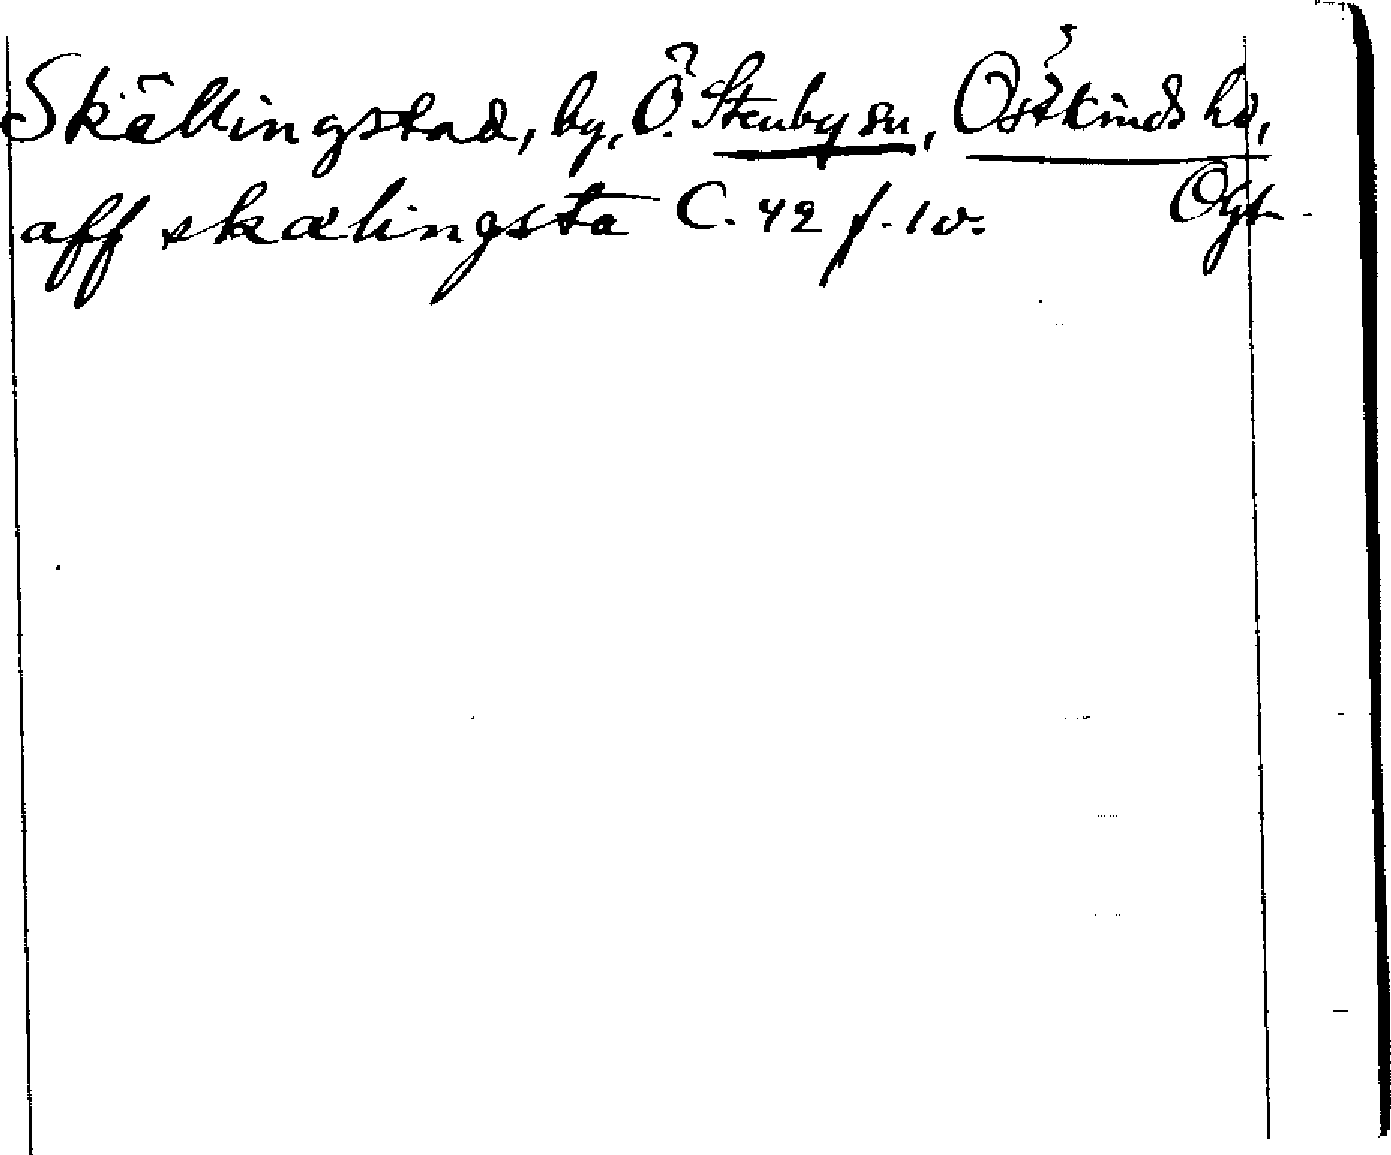 Skällingstad, by, Ö. Stenby sn, Östkinds hd,
aff skælingsta C. 42 f. 1 v. Ögl.